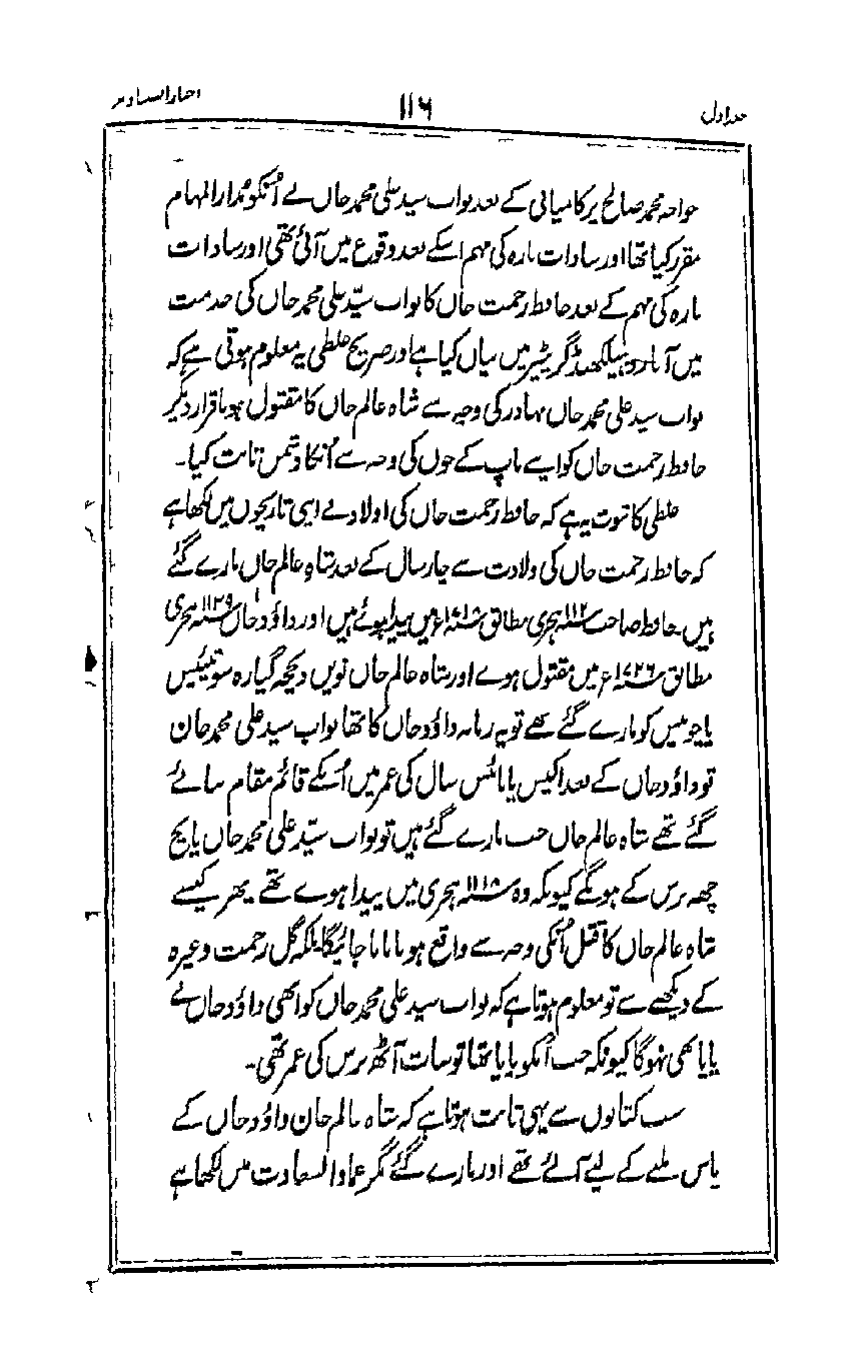 حصہ اول ۱۱۶ اخبار الصنادید
خواجہ محمد صالح پر کامیابی کے بعد نواب سید علی محمد خاں نے اُنکو مدار المہام
مقرر کیا تھا اور سادات بارہ کی مہم اسکے بعد وقوع میں آئی تھی اور سادات
بارہ کی مہم کے بعد حافظ رحمت خاں کا نواب سیّد علی محمد خاں کی خدمت
میں آنا روہیلکھنڈ گزیٹیر میں بیان کیا ہے اور صریح غلطی یہ معلوم ہوتی ہے کہ
نواب سید علی محمد خاں بہادر کی وجہ سے شاہ عالم خاں کا مقتول ہونا قرار دیکر
حافظ رحمت خاں کو اپنے باپ کے خوں کی وجہ سے اُنکا دشمن ثابت کیا۔
غلطی کا ثبوت یہ ہے کہ حافظ رحمت خاں کی اولاد نے اپنی تاریخوں میں لکھا ہے
کہ حافظ رحمت خاں کی ولادت سے چار سال کے بعد شاہ عالم خاں مارے گئے
ہیں۔ حافظ صاحب ہجری مطابق میں پیدا ہوئے ہیں اور داؤد خاں ہجری
مطابق ۱۷۲۶ء میں مقتول ہوے اور شاہ عالم خاں نویں ذیحجہ گیارہ سو تیئیس
یا چوبیس کو مارے گئے تھے تو یہ زمانہ داؤد خاں کا تھا نواب سید علی محمد خان
تو داؤد خاں کے بعد اکیس یا بائس سال کی عمر میں اُسکے قائم مقام بنائے
گئے تھے شاہ عالم خاں جب مارے گئے ہیں تو نواب سیّد علی محمد خاں پانچ
چھہ برس کے ہونگے کیونکہ وہ ۱۱۱۸ ہجری میں پیدا ہوے تھے پھر کیسے
شاہ عالم خاں کا قتل اُنکی وجہ سے واقع ہونا مانا جائیگا بلکہ گل رحمت وغیرہ
کے دیکھنے سے تو معلوم ہوتا ہے کہ نواب سید علی محمد خاں کو ابھی داؤد خاں نے
پایا بھی نہوگا کیونکہ جب اُنکو پایا تھا تو سات آٹھ برس کی عمر تھی۔
سب کتابوں سے یہی ثابت ہوتا ہے کہ شاہ عالم خان داؤد خاں کے
پاس ملنے کے لیے آئے تھے اور مارے گئے مگر عماد السعادت میں لکھا ہے